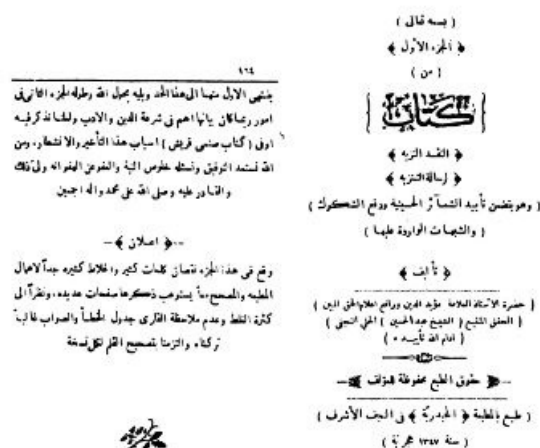 ( بسمه تعالى )
﴿ الجزء الأول ﴾
( من )
﴿ كتاب ﴾
﴿ النقد النزيه ﴾
﴿ لرسالة التنزيه ﴾
( وهو يتضمن تأييد الشعآئر الحسينية ودفع الشكوك )
( والشبهات الواردة عليها )
﴿ تأليف ﴾
( حضرة الاستاذ العلامة مؤيد الدين ورافع اعلام الحق المبين )
( المحقق المتتبع ( الشيخ عبد الحسين ) الحلي النجفي )
( ادام الله تأييده )
﴿ حقوق الطبع محفوظة للمؤلف ﴾
( طبع بالمطبعة ﴿ الحيدرية ﴾ في النجف الأشرف )
( سنة ١٣٤٧ هجرية )
١٦٤
ينتهى الاول منهما الى هذا الحد ويليه بحول الله وطوله الجزء الثاني في
امور ربما كان بيانها اهم في شرعة الدين والادب ولعلنا نذكر فيه
اوفى ( كتاب صنمي قريش ) اسباب هذا التأخير والانشطار، ومن
الله نستمد التوفيق ونسئله خلوص النية والعفو عن الهفوة انه ولي ذلك
والقادر عليه وصلى الله على محمد واله اجمعين
﴿ اعلان ﴾
وقع في هذا الجزء نقصان كلمات كثير واغلاط كثيرة جداً لاهمال
المطبعة والمصحح مما يستوعب ذكرها صفحات عديده، ونظراً الى
كثرة الغلط وعدم ملاحظة القارى جدول الخطأ والصواب غالباً
تركناه والتزمنا بتصحيح القلم لكل نسخة